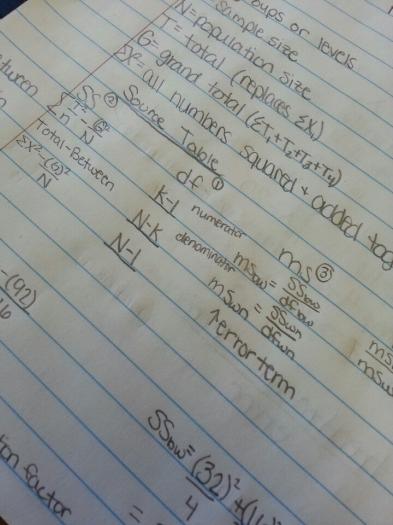 oups or levels
sample size
N=population size
T= total (replaces ΣX)
G= grand total (ΣT₁+T₂+T₃+T₄)
ΣX²= all numbers squared + added tog
Source Table
SS ② df ① MS ③
Σ T²/n - G²/N k-1 numerator MSbw = SSbw/dfbw
Total-Between N-k denominator MSwn = SSwn/dfwn
ΣX²-(G)²/N N-1 ↑error term
etween
MS
MSw
-(92)
SSbw= (32)²/4 +(1
=
tion factor